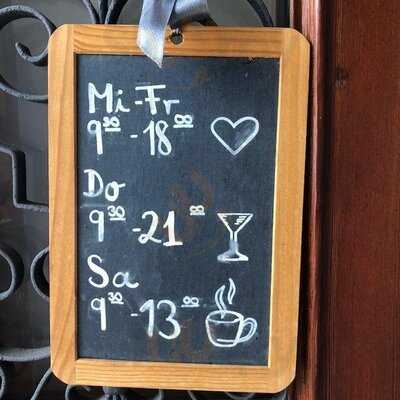 Mi-Fr
9³⁰ - 18⁰⁰
Do
9³⁰ - 21⁰⁰
Sa
9³⁰ - 13⁰⁰